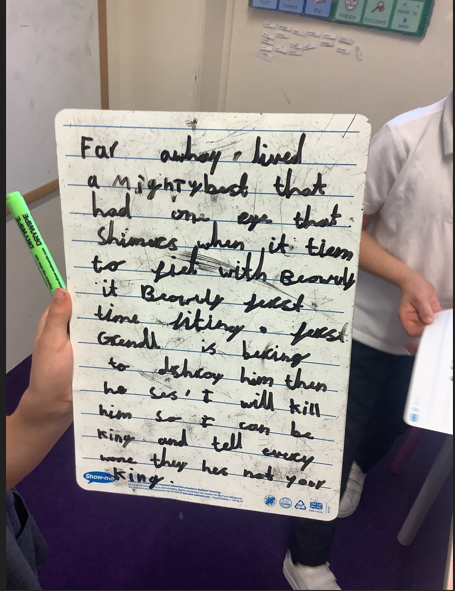 Far away, lived
a Mighty best that
had one eye that
Shimors when it tiem
to fiet with Beowuly
it Beowuly ferst
time fiting. ferst
Grendl is beking
to dshroy him then
he ses' I will kill
him so I can be
king and tell every
wone they hes not your
king.
Show-me
DRYWIPE